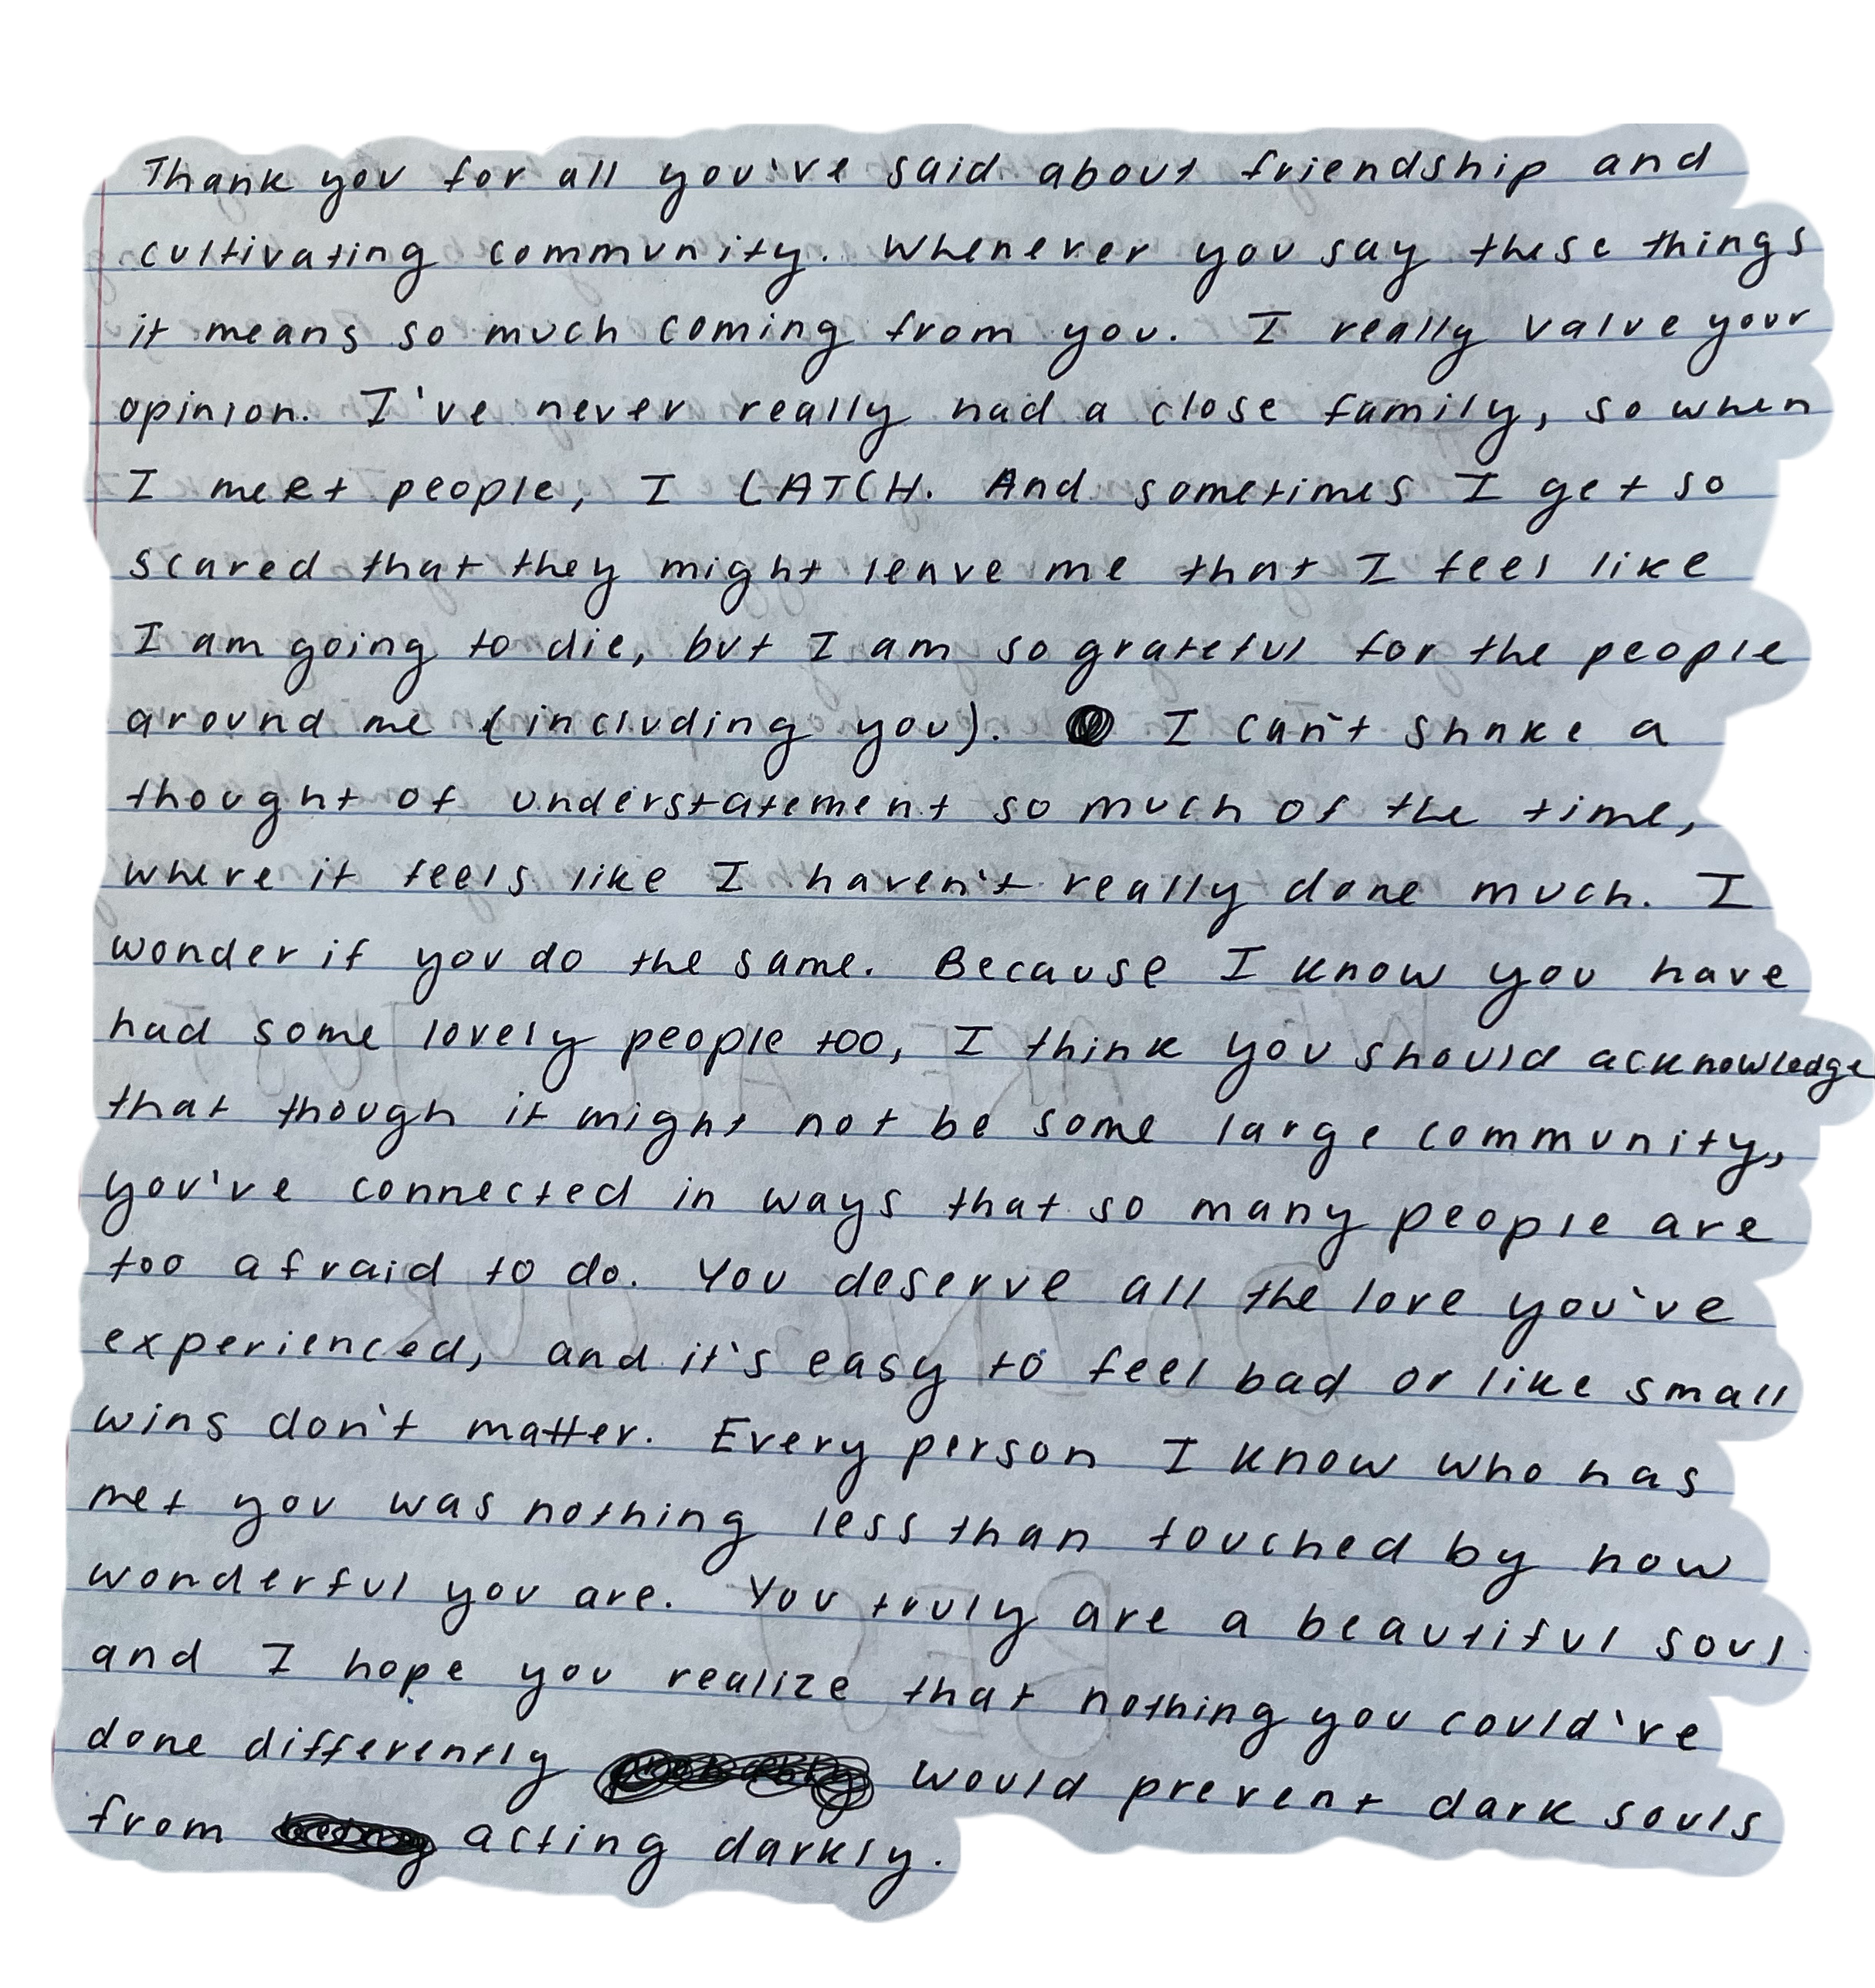 Thank you for all you've said about friendship and
cultivating community. Whenever you say these things
it means so much coming from you. I really value your
opinion. I've never really had a close family, so when
I meet people, I LATCH. And sometimes I get so
scared that they might leave me that I feel like
I am going to die, but I am so grateful for the people
around me (including you). I can't shake a
thought of understatement so much of the time,
where it feels like I haven't really done much. I
wonder if you do the same. Because I know you have
had some lovely people too, I think you should acknowledge
that though it might not be some large community,
you've connected in ways that so many people are
too afraid to do. You deserve all the love you've
experienced, and it's easy to feel bad or like small
wins don't matter. Every person I know who has
met you was nothing less than touched by how
wonderful you are. You truly are a beautiful soul
and I hope you realize that nothing you could've
done differently would prevent dark souls
from acting darkly.